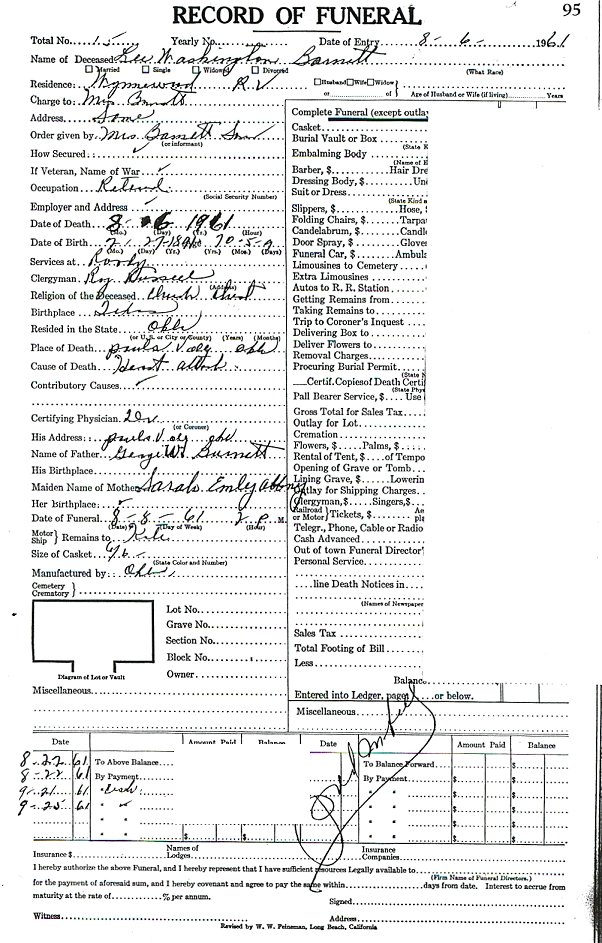 RECORD OF FUNERAL 95
Total No. 15 Yearly No. Date of Entry 8-6- 1961
Name of Deceased Lee Washington Barnett
Married Single Widow Divorced (What Race)
Residence: Wynnewood Husband Wife Widow
or of Age of Husband or Wife (if living) Years
Charge to: Mrs. Barnett
Address Same
Order given by Mrs. Barnett
(or informant)
How Secured:
If Veteran, Name of War
Occupation Retired
(Social Security Number)
Employer and Address
Date of Death 8-6 1961
(Mo.) (Day) (Yr.) (Hour)
Date of Birth 70-5-9
(Mo.) (Day) (Yr.) (Yrs.) (Mos.) (Days)
Services at
Clergyman Roy
(Address)
Religion of the Deceased Church Christ
Birthplace
Resided in the State Okla
(or U.S. or City or County) (Years) (Months)
Place of Death Pauls Valley Okla
Cause of Death Heart attack
Contributory Causes
Certifying Physician
(or Coroner)
His Address: Pauls Valley Okla
Name of Father George W. Barnett
His Birthplace
Maiden Name of Mother Sarah Emily
Her Birthplace
Date of Funeral 8-8-61 2 P. M.
(Date) (Day of Week) (Hour)
Motor Ship Remains to
Size of Casket 6/6
(State Color and Number)
Manufactured by: Okla
Cemetery
Crematory
Lot No.
Grave No.
Section No.
Block No.
Owner
Diagram of Lot or Vault
Miscellaneous
Complete Funeral (except outlay
Casket
Burial Vault or Box
(State K
Embalming Body
(Name of E
Barber, $ Hair Dre
Dressing Body, $ Un
Suit or Dress
(State Kind a
Slippers, $ Hose,
Folding Chairs, $ Tarpa
Candelabrum, $ Candl
Door Spray, $ Glove
Funeral Car, $ Ambul
Limousines to Cemetery
Extra Limousines
Autos to R. R. Station
Getting Remains from
Taking Remains to
Trip to Coroner's Inquest
Delivering Box to
Deliver Flowers to
Removal Charges
Procuring Burial Permit
(State N
Certif. Copies of Death Certi
(State Phy
Pall Bearer Service, $ Use
Gross Total for Sales Tax
Outlay for Lot
Cremation
Flowers, $ Palms, $
Rental of Tent, $ of Tempo
Opening of Grave or Tomb
Lining Grave, $ Lowerin
Outlay for Shipping Charges
Clergyman, $ Singers, $
Railroad or Motor Tickets, $ Ae
pla
Telegr., Phone, Cable or Radio
Cash Advanced
Out of town Funeral Director'
Personal Service
line Death Notices in
(Names of Newspaper
Sales Tax
Total Footing of Bill
Less
Balanc
Entered into Ledger, page or below.
Miscellaneous
Date Amount Paid Balance Date Amount Paid Balance
8-22 61 To Above Balance To Balance Forward $
8-22 61 By Payment By Payment $ $
9-21 61 " " " $ $
9-25 61 " " " " $ $
" " $ $ " " $ $
Insurance $ Names of Lodges Insurance Companies
I hereby authorize the above Funeral, and I hereby represent that I have sufficient resources Legally available to
(Firm Name of Funeral Directors.)
for the payment of aforesaid sum, and I hereby covenant and agree to pay the same within days from date. Interest to accrue from
maturity at the rate of % per annum. Signed
Witness Address
Revised by W. W. Feinsman, Long Beach, California